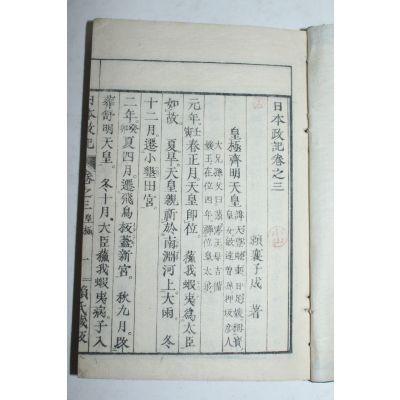 日本政記卷之三
賴襄子成著
皇極齊明天皇
元年。壬寅春正月。天皇即位。 大臣蘇我蝦夷爲大臣
如故。夏旱。天皇親祈於南淵河上。大雨。冬
十二月。遷小墾田宮。
二年。癸卯夏四月。遷飛鳥板蓋新宮。秋九月。改
葬舒明天皇。冬十月。大臣蘇我蝦夷病。子入
日本政記 卷之三 皇極 一 賴氏藏版